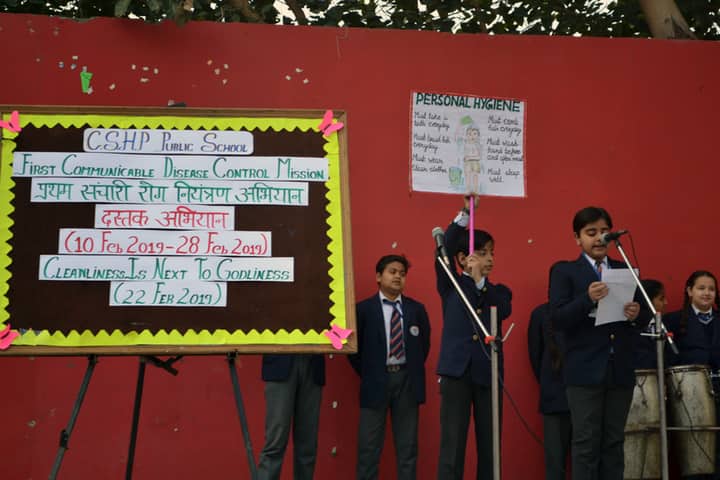 C.S.H.P Public School
First Communicable Disease Control Mission
प्रथम संचारी रोग नियंत्रण अभियान
दस्तक अभियान
(10 Feb 2019-28 Feb 2019)
Cleanliness Is Next To Godliness
(22 Feb 2019)
PERSONAL HYGIENE
Must take a
bath everyday.
Must brush teeth
everyday.
Must wear
clean clothes.
Must comb
hair everyday.
Must wash
hand before
and after meal.
Must sleep
well.